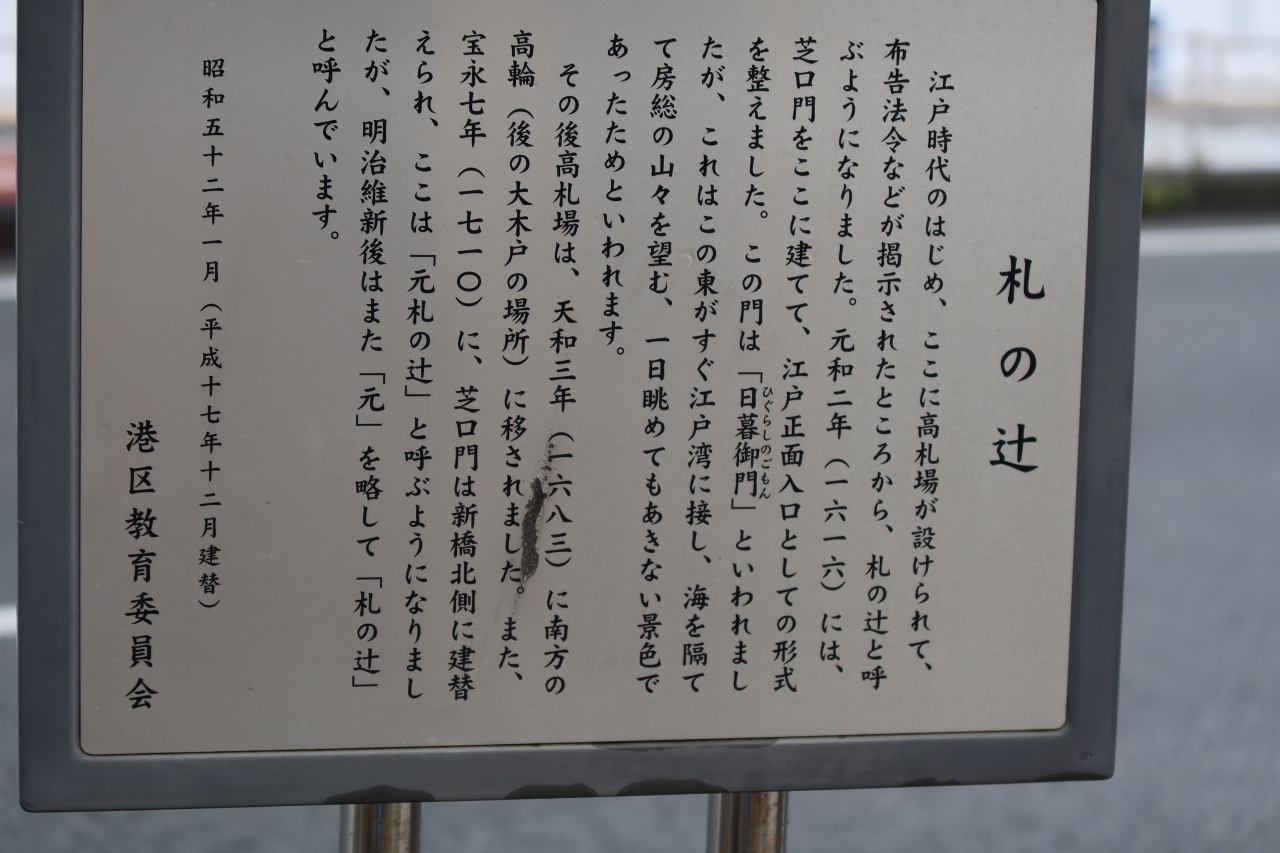 札の辻
江戸時代のはじめ、ここに高札場が設けられて、
布告法令などが掲示されたところから、札の辻と呼
ぶようになりました。元和二年（一六一六）には、
芝口門をここに建てて、江戸正面入口としての形式
を整えました。この門は「日暮御門」といわれまし
ひぐらしのごもん
たが、これはこの東がすぐ江戸湾に接し、海を隔て
て房総の山々を望む、一日眺めてもあきない景色で
あったためといわれます。
その後高札場は、天和三年（一六八三）に南方の
高輪（後の大木戸の場所）に移されました。また、
宝永七年（一七一〇）に、芝口門は新橋北側に建替
えられ、ここは「元札の辻」と呼ぶようになりまし
たが、明治維新後はまた「元」を略して「札の辻」
と呼んでいます。
昭和五十二年一月（平成十七年十二月建替）
港区教育委員会